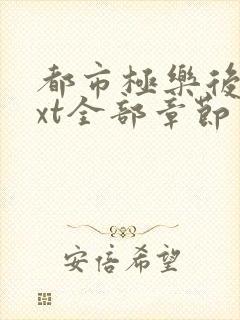 都市極樂後
xt全部章節
安倍希望